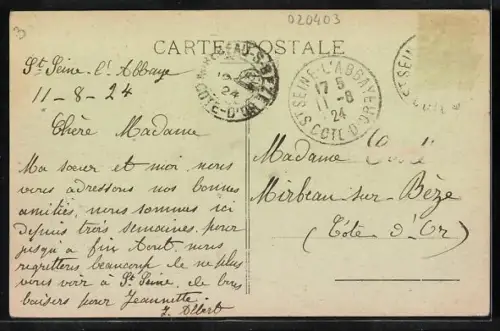 020403
3
CARTE POSTALE
St Seine-l'Abbaye
11-8-24
Chère Madame
Ma sœur et moi nous
vous adressons nos bonnes
amitiés, nous sommes ici
depuis trois semaines pour
jusqu'à fin Aout. nous
regrettons beaucoup de ne plus
vous voir à St Seine, de bons
baisers pour Jeannette.
Albert
ST SEINE-L'ABBAYE
17 5
11-8
24
COTE-D'OR
24
COTE-D'OR
ST SEINE
Madame
Mirbeau-sur-Bèze
(Côte d'Or)